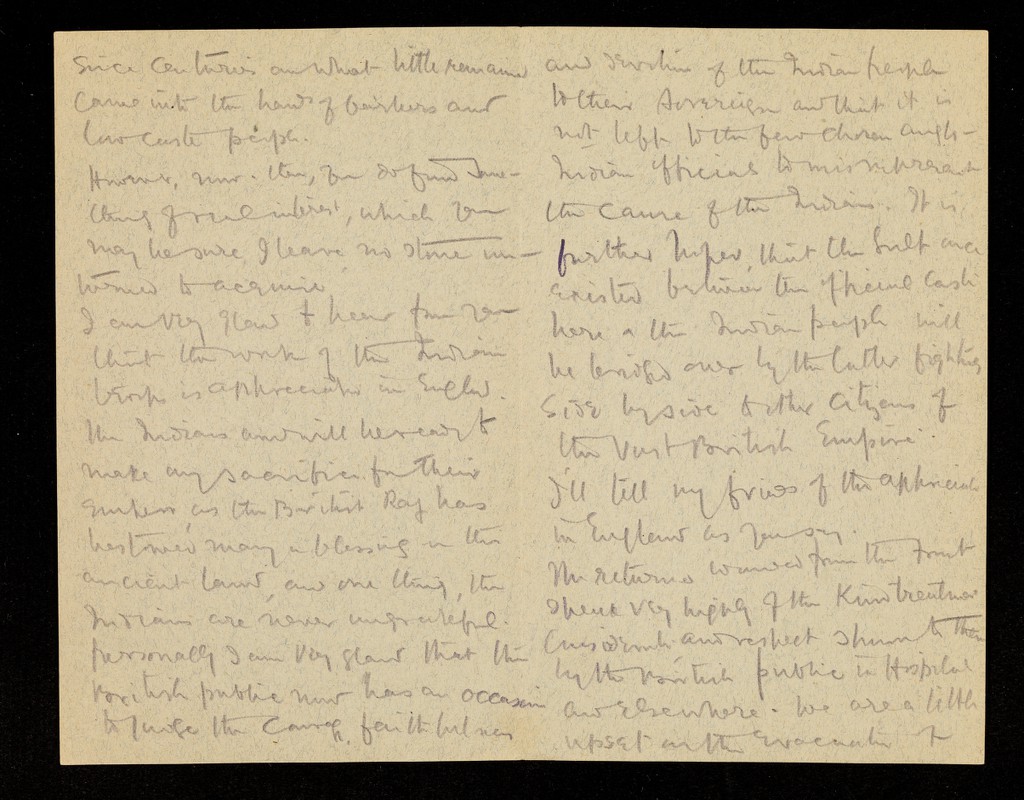 Since Centuries and what little remained
came into the hands of bankers and
low caste people.
However, now & then, you do find some-
thing of real interest, which you
may be sure, I leave no stone un-
turned to acquire.
I am very glad to hear from you
that the work of the Indian
troops is appreciated in England.
The Indians and will be ready to
make any sacrifice for their
Emperor, as the British Raj has
bestowed many a blessing on this
ancient land, and one thing, the
Indians are never ungrateful.
Personally I am very glad that the
British public now has an occasion
to judge the courage, faithfulness
and devotion of the Indian people
to their Sovereign and that it is
not left to the few chosen Anglo-
Indian officials to misrepresent
the cause of the Indians. It is,
further hoped, that the Gulf once
existed between the official caste
here & the Indian people will
be bridged over by the latter fighting
side by side to other citizens of
the Vast British Empire.
I'll tell my friends of the appreciation
in England as you say.
The returned wounded from the Front
speak very highly of the Kind treatment
and respect shown to them
by the British public in Hospital
and elsewhere. We are a little
upset on the Evacuation of